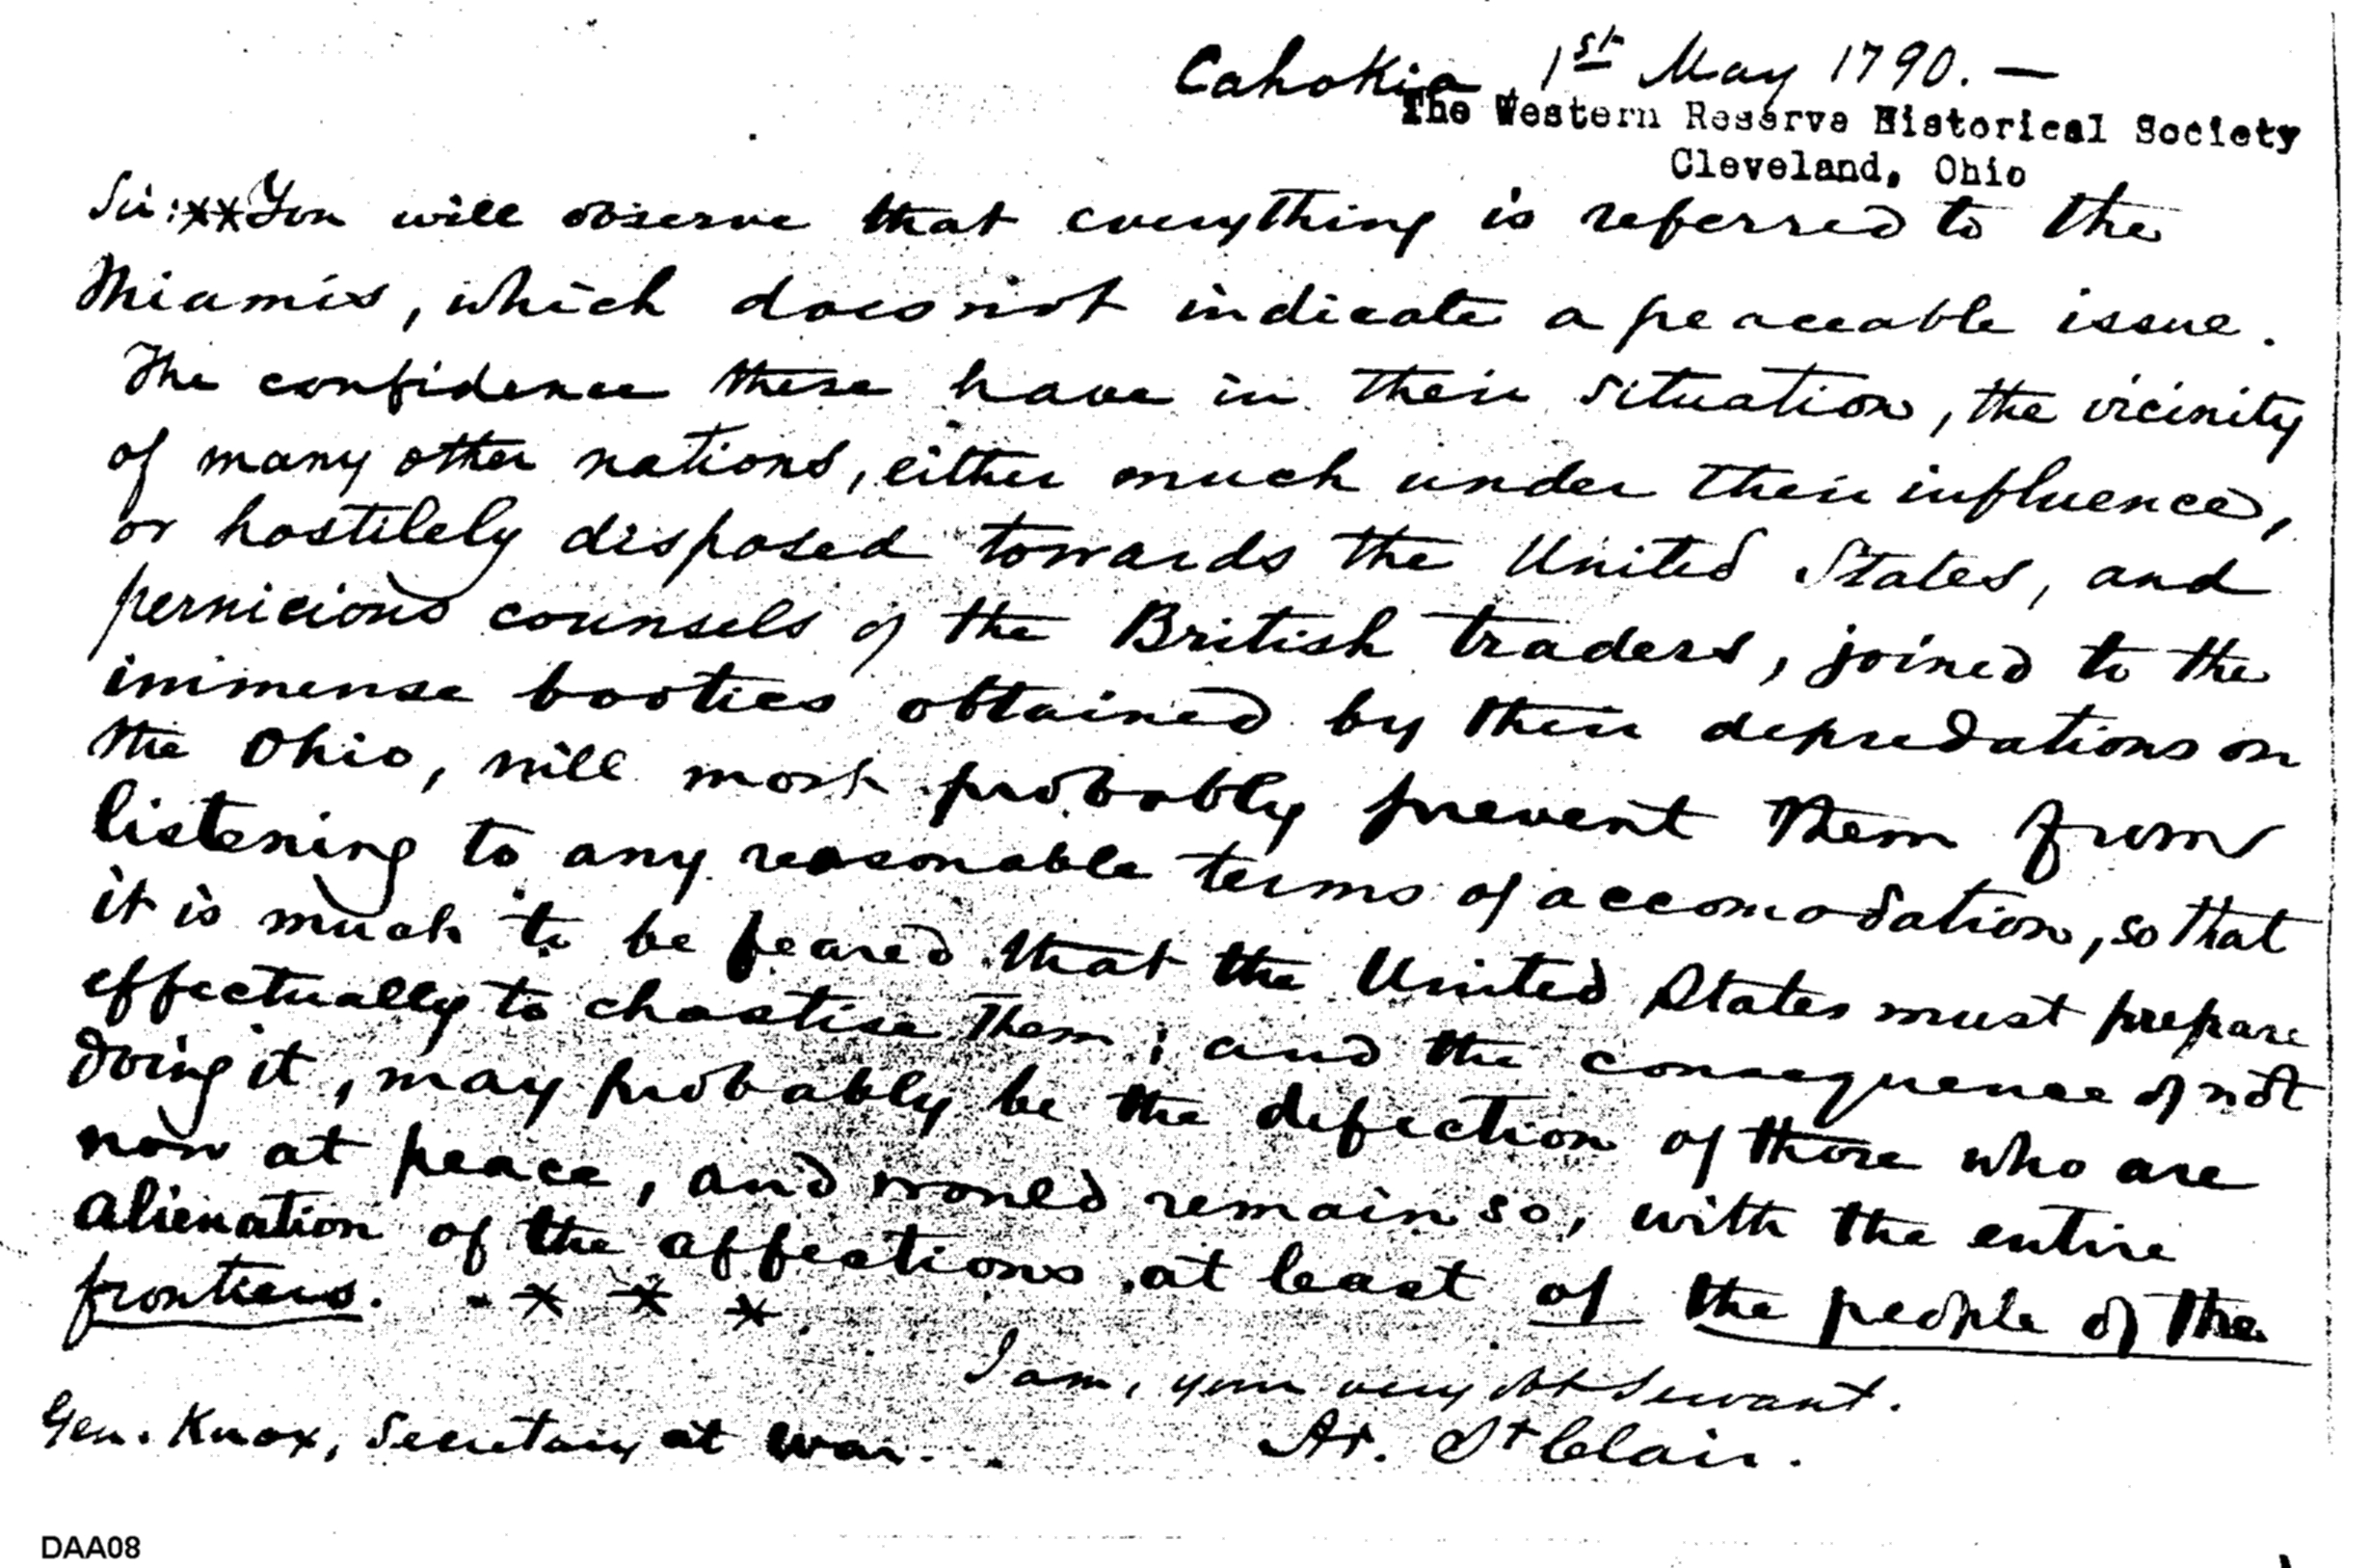 Cahokia 1st May 1790. —
The Western Reserve Historical Society
Cleveland, Ohio
Sir:xxYou will observe that everything is referred to the
Miamis, which does not indicate a peaceable issue.
The confidence these have in their situation, the vicinity
of many other nations, either much under their influence,
or hostilely disposed towards the United States, and
pernicious counsels of the British traders, joined to the
immense booties obtained by their depredations on
the Ohio, will most probably prevent them from
listening to any reasonable terms of accomodation, so that
it is much to be feared that the United States must prepare
effectually to chastise them; and the consequence of not
doing it, may probably be the defection of those who are
now at peace, and would remain so, with the entire
alienation of the affections at least of the people of the
frontiers. - x x x.
I am, your very obt servant.
Gen. Knox, Secretary at War.
Ar. St Clair.
DAA08